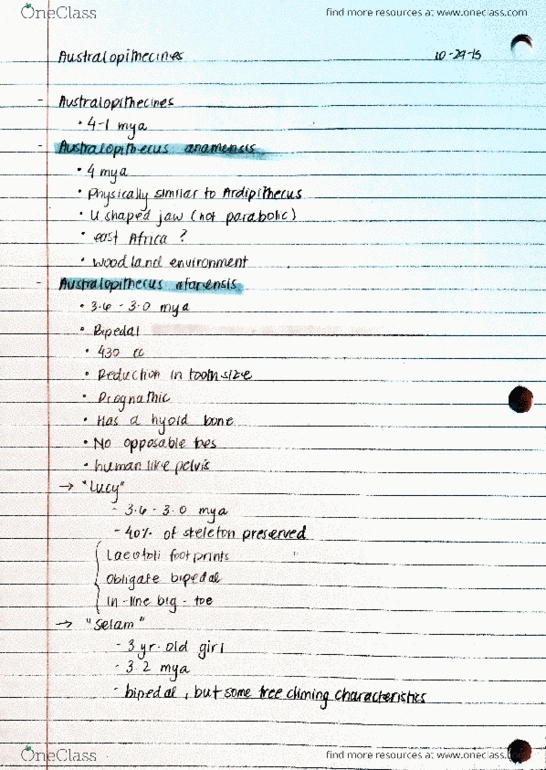 OneClass
find more resources at www.oneclass.com
Australopithecines 10-29-15
- Australopithecines
• 4-1 mya
- Australopithecus anamensis
• 4 mya
• Physically similar to Ardipithecus
• U shaped jaw (not parabolic)
• east Africa ?
• woodland environment
- Australopithecus afarensis
• 3.6 - 3.0 mya
• Bipedal
• 430 cc
• Reduction in tooth size
• Prognathic
• Has a hyoid bone
• No opposable toes
• human like pelvis
→ "Lucy"
- 3.6 - 3.0 mya
- 40% of skeleton preserved
Laetoli footprints
Obligate bipedal
In-line big-toe
→ "Selam"
- 3 yr. old girl
- 3.2 mya
- bipedal, but some tree climing characteristics
OneClass
find more resources at www.oneclass.com